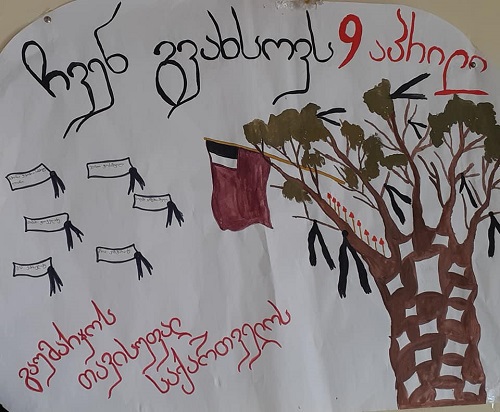 ჩვენ გვახსოვს 9 აპრილი
გაუმარჯოს
თავისუფალ
საქართველოს